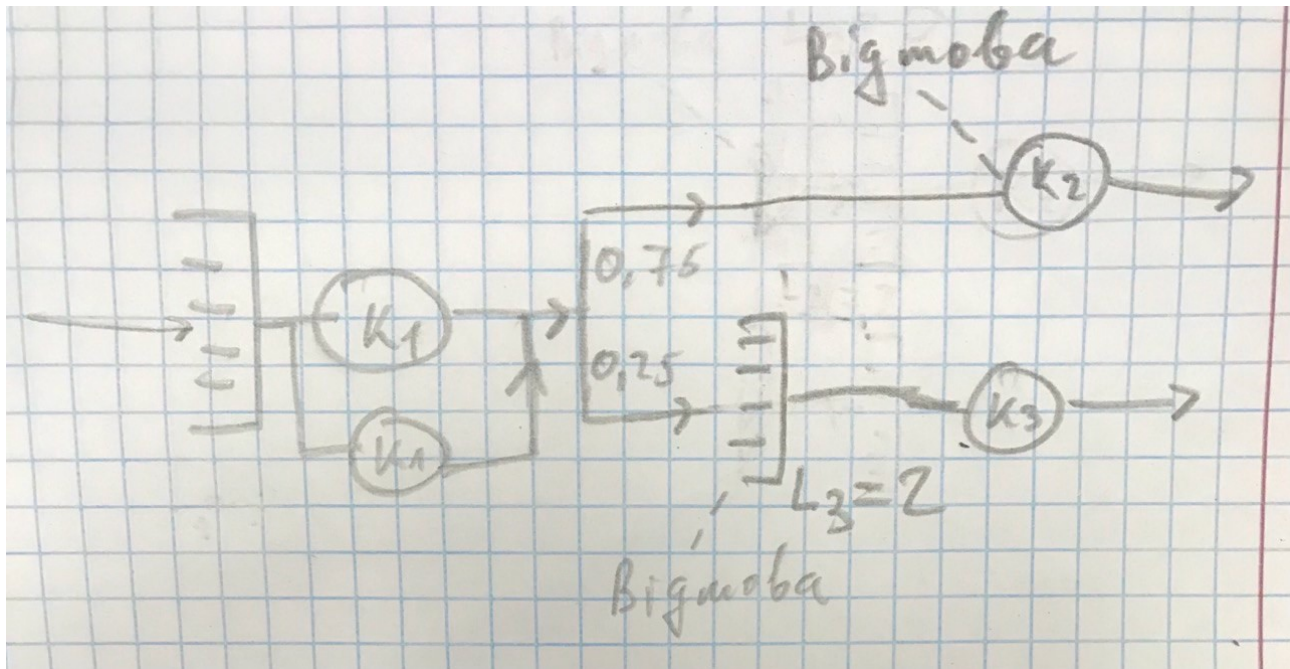 Відмова
K2
0,75
K1
0,25
K3
K1
L3=2
Відмова